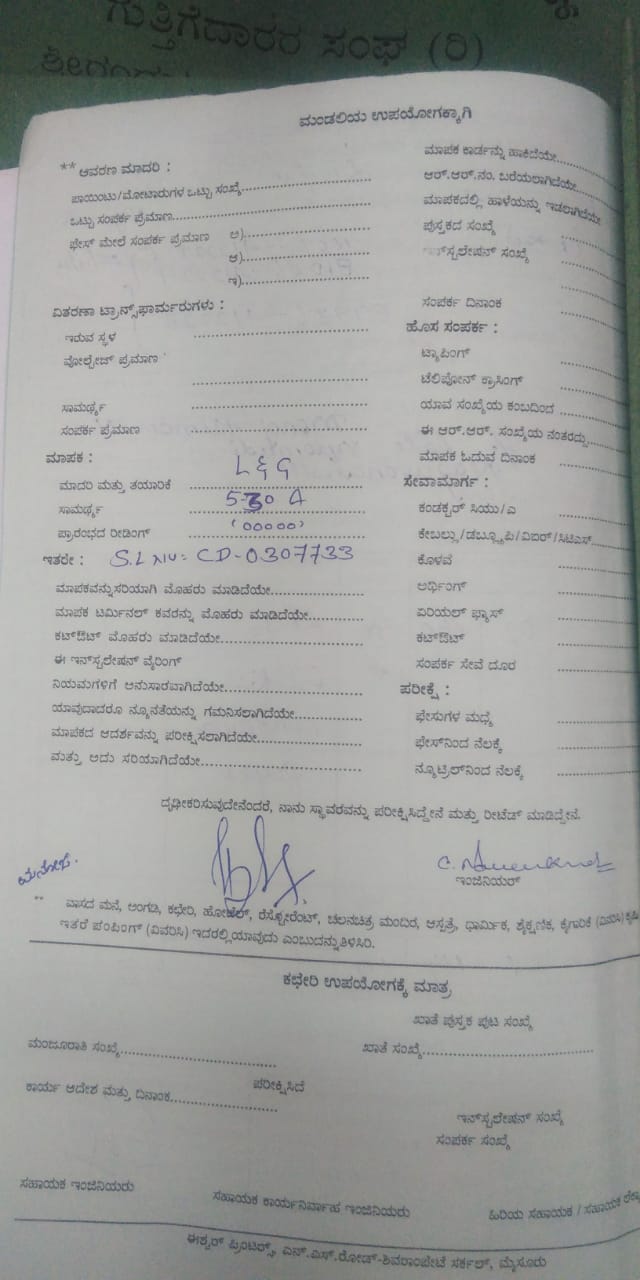 ಗುತ್ತಿಗೆದಾರರ ಸಂಘ (ರಿ)
ಮಂಡಲಿಯ ಉಪಯೋಗಕ್ಕಾಗಿ
** ಆವರಣ ಮಾದರಿ :
ಪಾಯಿಂಟು/ಮೋಟಾರುಗಳ ಒಟ್ಟು ಸಂಖ್ಯೆ
ಒಟ್ಟು ಸಂಪರ್ಕ ಪ್ರಮಾಣ
ಫೇಸ್ ಮೇಲೆ ಸಂಪರ್ಕ ಪ್ರಮಾಣ ಅ)
ಆ)
ಇ)
ವಿತರಣಾ ಟ್ರಾನ್ಸ್‌ಫಾರ್ಮರುಗಳು :
ಇರುವ ಸ್ಥಳ
ವೋಲ್ಟೇಜ್ ಪ್ರಮಾಣ
ಸಾಮರ್ಥ್ಯ
ಸಂಪರ್ಕ ಪ್ರಮಾಣ
ಮಾಪಕ :
ಮಾದರಿ ಮತ್ತು ತಯಾರಿಕೆ L&G
ಸಾಮರ್ಥ್ಯ 5-30 A
ಪ್ರಾರಂಭದ ರೀಡಿಂಗ್ (00000)
ಇತರೇ : S.L NO: CD-0307733
ಮಾಪಕವನ್ನು ಸರಿಯಾಗಿ ಮೊಹರು ಮಾಡಿದೆಯೇ
ಮಾಪಕ ಟರ್ಮಿನಲ್ ಕವರನ್ನು ಮೊಹರು ಮಾಡಿದೆಯೇ
ಕಟ್‌ಔಟ್ ಮೊಹರು ಮಾಡಿದೆಯೇ
ಈ ಇನ್‌ಸ್ಟಲೇಷನ್ ವೈರಿಂಗ್
ನಿಯಮಗಳಿಗೆ ಅನುಸಾರವಾಗಿದೆಯೇ
ಯಾವುದಾದರೂ ನ್ಯೂನತೆಯನ್ನು ಗಮನಿಸಲಾಗಿದೆಯೇ
ಮಾಪಕದ ಆದರ್ಶವನ್ನು ಪರೀಕ್ಷಿಸಲಾಗಿದೆಯೇ
ಮತ್ತು ಅದು ಸರಿಯಾಗಿದೆಯೇ
ಮಾಪಕ ಕಾರ್ಡನ್ನು ಹಾಕಿದೆಯೇ
ಆರ್.ಆರ್.ನಂ. ಬರೆಯಲಾಗಿದೆಯೇ
ಮಾಪಕದಲ್ಲಿ ಹಾಳೆಯನ್ನು ಇಡಲಾಗಿದೆಯೇ
ಪುಸ್ತಕದ ಸಂಖ್ಯೆ
ಇನ್‌ಸ್ಟಲೇಷನ್ ಸಂಖ್ಯೆ
ಸಂಪರ್ಕ ದಿನಾಂಕ
ಹೊಸ ಸಂಪರ್ಕ :
ಟ್ಯಾಪಿಂಗ್
ಟೆಲಿಫೋನ್ ಕ್ರಾಸಿಂಗ್
ಯಾವ ಸಂಖ್ಯೆಯ ಕಂಬದಿಂದ
ಈ ಆರ್.ಆರ್. ಸಂಖ್ಯೆಯ ನಂತರದ್ದು
ಮಾಪಕ ಓದುವ ದಿನಾಂಕ
ಸೇವಾಮಾರ್ಗ :
ಕಂಡಕ್ಟರ್ ಸಿಯು/ಎ
ಕೇಬಲ್ಲು/ಡಬ್ಲ್ಯೂಪಿ/ವಿಐಆರ್/ಸಿಟಿಎಸ್
ಕೊಳವೆ
ಅರ್ಥಿಂಗ್
ಏರಿಯಲ್ ಫ್ಯೂಸ್
ಕಟ್‌ಔಟ್
ಸಂಪರ್ಕ ಸೇವೆ ದೂರ
ಪರೀಕ್ಷೆ :
ಫೇಸುಗಳ ಮಧ್ಯೆ
ಫೇಸ್‌ನಿಂದ ನೆಲಕ್ಕೆ
ನ್ಯೂಟ್ರಲ್‌ನಿಂದ ನೆಲಕ್ಕೆ
ದೃಢೀಕರಿಸುವುದೇನೆಂದರೆ, ನಾನು ಸ್ಥಾವರವನ್ನು ಪರೀಕ್ಷಿಸಿದ್ದೇನೆ ಮತ್ತು ರೀಟೆಡ್ ಮಾಡಿದ್ದೇನೆ.
ಇಂಜಿನಿಯರ್
** ವಾಸದ ಮನೆ, ಅಂಗಡಿ, ಕಛೇರಿ, ಹೋಟೆಲ್, ರೆಸ್ಟೋರೆಂಟ್, ಚಲನಚಿತ್ರ ಮಂದಿರ, ಆಸ್ಪತ್ರೆ, ಧಾರ್ಮಿಕ, ಶೈಕ್ಷಣಿಕ, ಕೈಗಾರಿಕೆ (ವಿವರಿಸಿ) ಕೃಷಿ
ಇತರೆ ಪಂಪಿಂಗ್ (ವಿವರಿಸಿ) ಇದರಲ್ಲಿ ಯಾವುದು ಎಂಬುದನ್ನು ತಿಳಿಸಿರಿ.
ಕಛೇರಿ ಉಪಯೋಗಕ್ಕೆ ಮಾತ್ರ
ಖಾತೆ ಪುಸ್ತಕ ಪುಟ ಸಂಖ್ಯೆ
ಮಂಜೂರಾತಿ ಸಂಖ್ಯೆ ಖಾತೆ ಸಂಖ್ಯೆ
ಪರೀಕ್ಷಿಸಿದೆ
ಕಾರ್ಯ ಆದೇಶ ಮತ್ತು ದಿನಾಂಕ
ಇನ್‌ಸ್ಟಲೇಷನ್ ಸಂಖ್ಯೆ
ಸಂಪರ್ಕ ಸಂಖ್ಯೆ
ಸಹಾಯಕ ಇಂಜಿನಿಯರು ಸಹಾಯಕ ಕಾರ್ಯನಿರ್ವಾಹ ಇಂಜಿನಿಯರು ಹಿರಿಯ ಸಹಾಯಕ / ಸಹಾಯಕ
ಈಶ್ವರ್ ಪ್ರಿಂಟರ್ಸ್, ಎನ್.ಎಸ್.ರೋಡ್-ಶಿವರಾಂಪೇಟೆ ಸರ್ಕಲ್, ಮೈಸೂರು